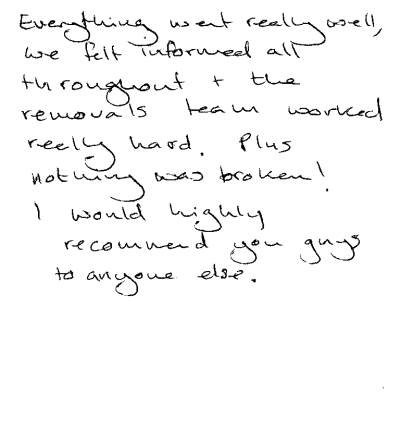 Everything went really well,
we felt informed all
throughout + the
removals team worked
really hard. Plus
nothing was broken!
I would highly
recommend you guys
to anyone else.